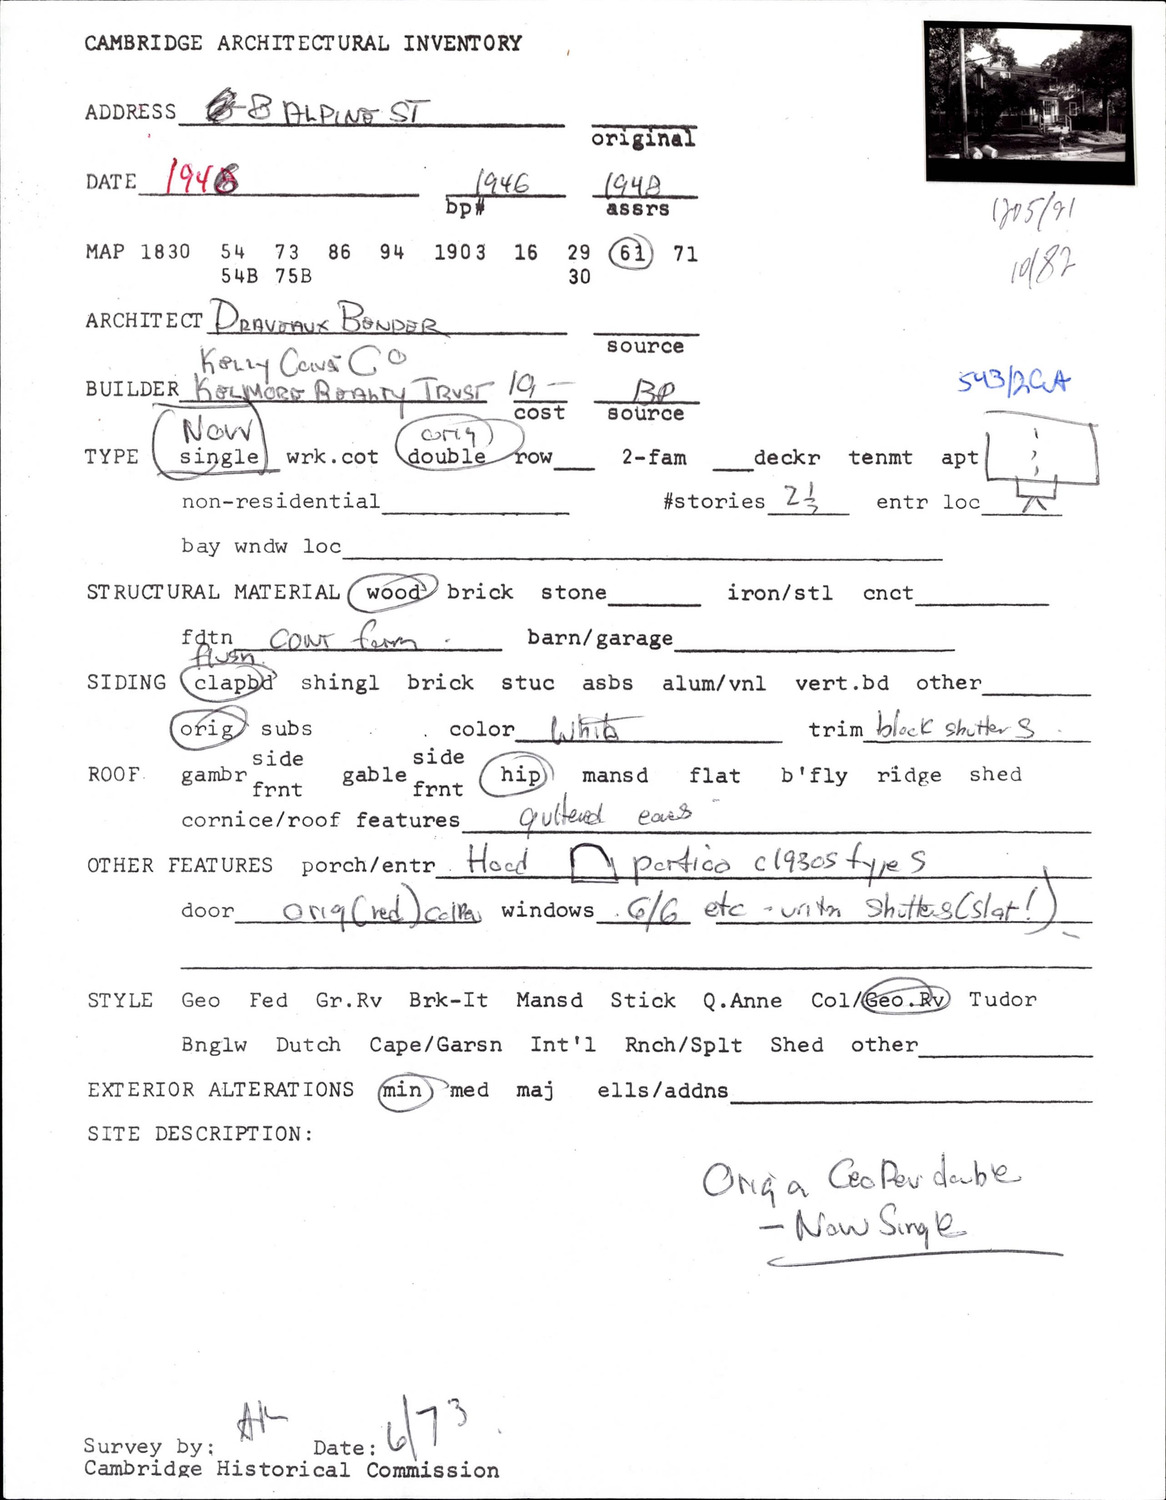 CAMBRIDGE ARCHITECTURAL INVENTORY
ADDRESS 6-8 ALPINE ST
original
DATE 1946 1946 1948
bp# assrs
1205/91
10/82
MAP 1830 54 73 86 94 1903 16 29 61 71
54B 75B 30
ARCHITECT BENDER
source
Kelly Const Co
BUILDER KELMORE REALTY TRUST 19- BP
cost source
543/29A
Now orig
TYPE single wrk.cot double row 2-fam deckr tenmt apt
non-residential #stories 2½ entr loc
bay wndw loc
STRUCTURAL MATERIAL wood brick stone iron/stl cnct
fdtn barn/garage
flush
SIDING clapbd shingl brick stuc asbs alum/vnl vert.bd other
orig subs color White trim black shutters
side side
ROOF gambr gable hip mansd flat b'fly ridge shed
frnt frnt
cornice/roof features guttered eaves
OTHER FEATURES porch/entr Hood portico c1930s types
door orig (red) windows 6/6 etc - with shutters (slat!)
STYLE Geo Fed Gr.Rv Brk-It Mansd Stick Q.Anne Col/Geo.Rv Tudor
Bnglw Dutch Cape/Garsn Int'l Rnch/Splt Shed other
EXTERIOR ALTERATIONS min med maj ells/addns
SITE DESCRIPTION:
Orig a Geo Rev double
- Now Single
Survey by: Date: 6/73
Cambridge Historical Commission